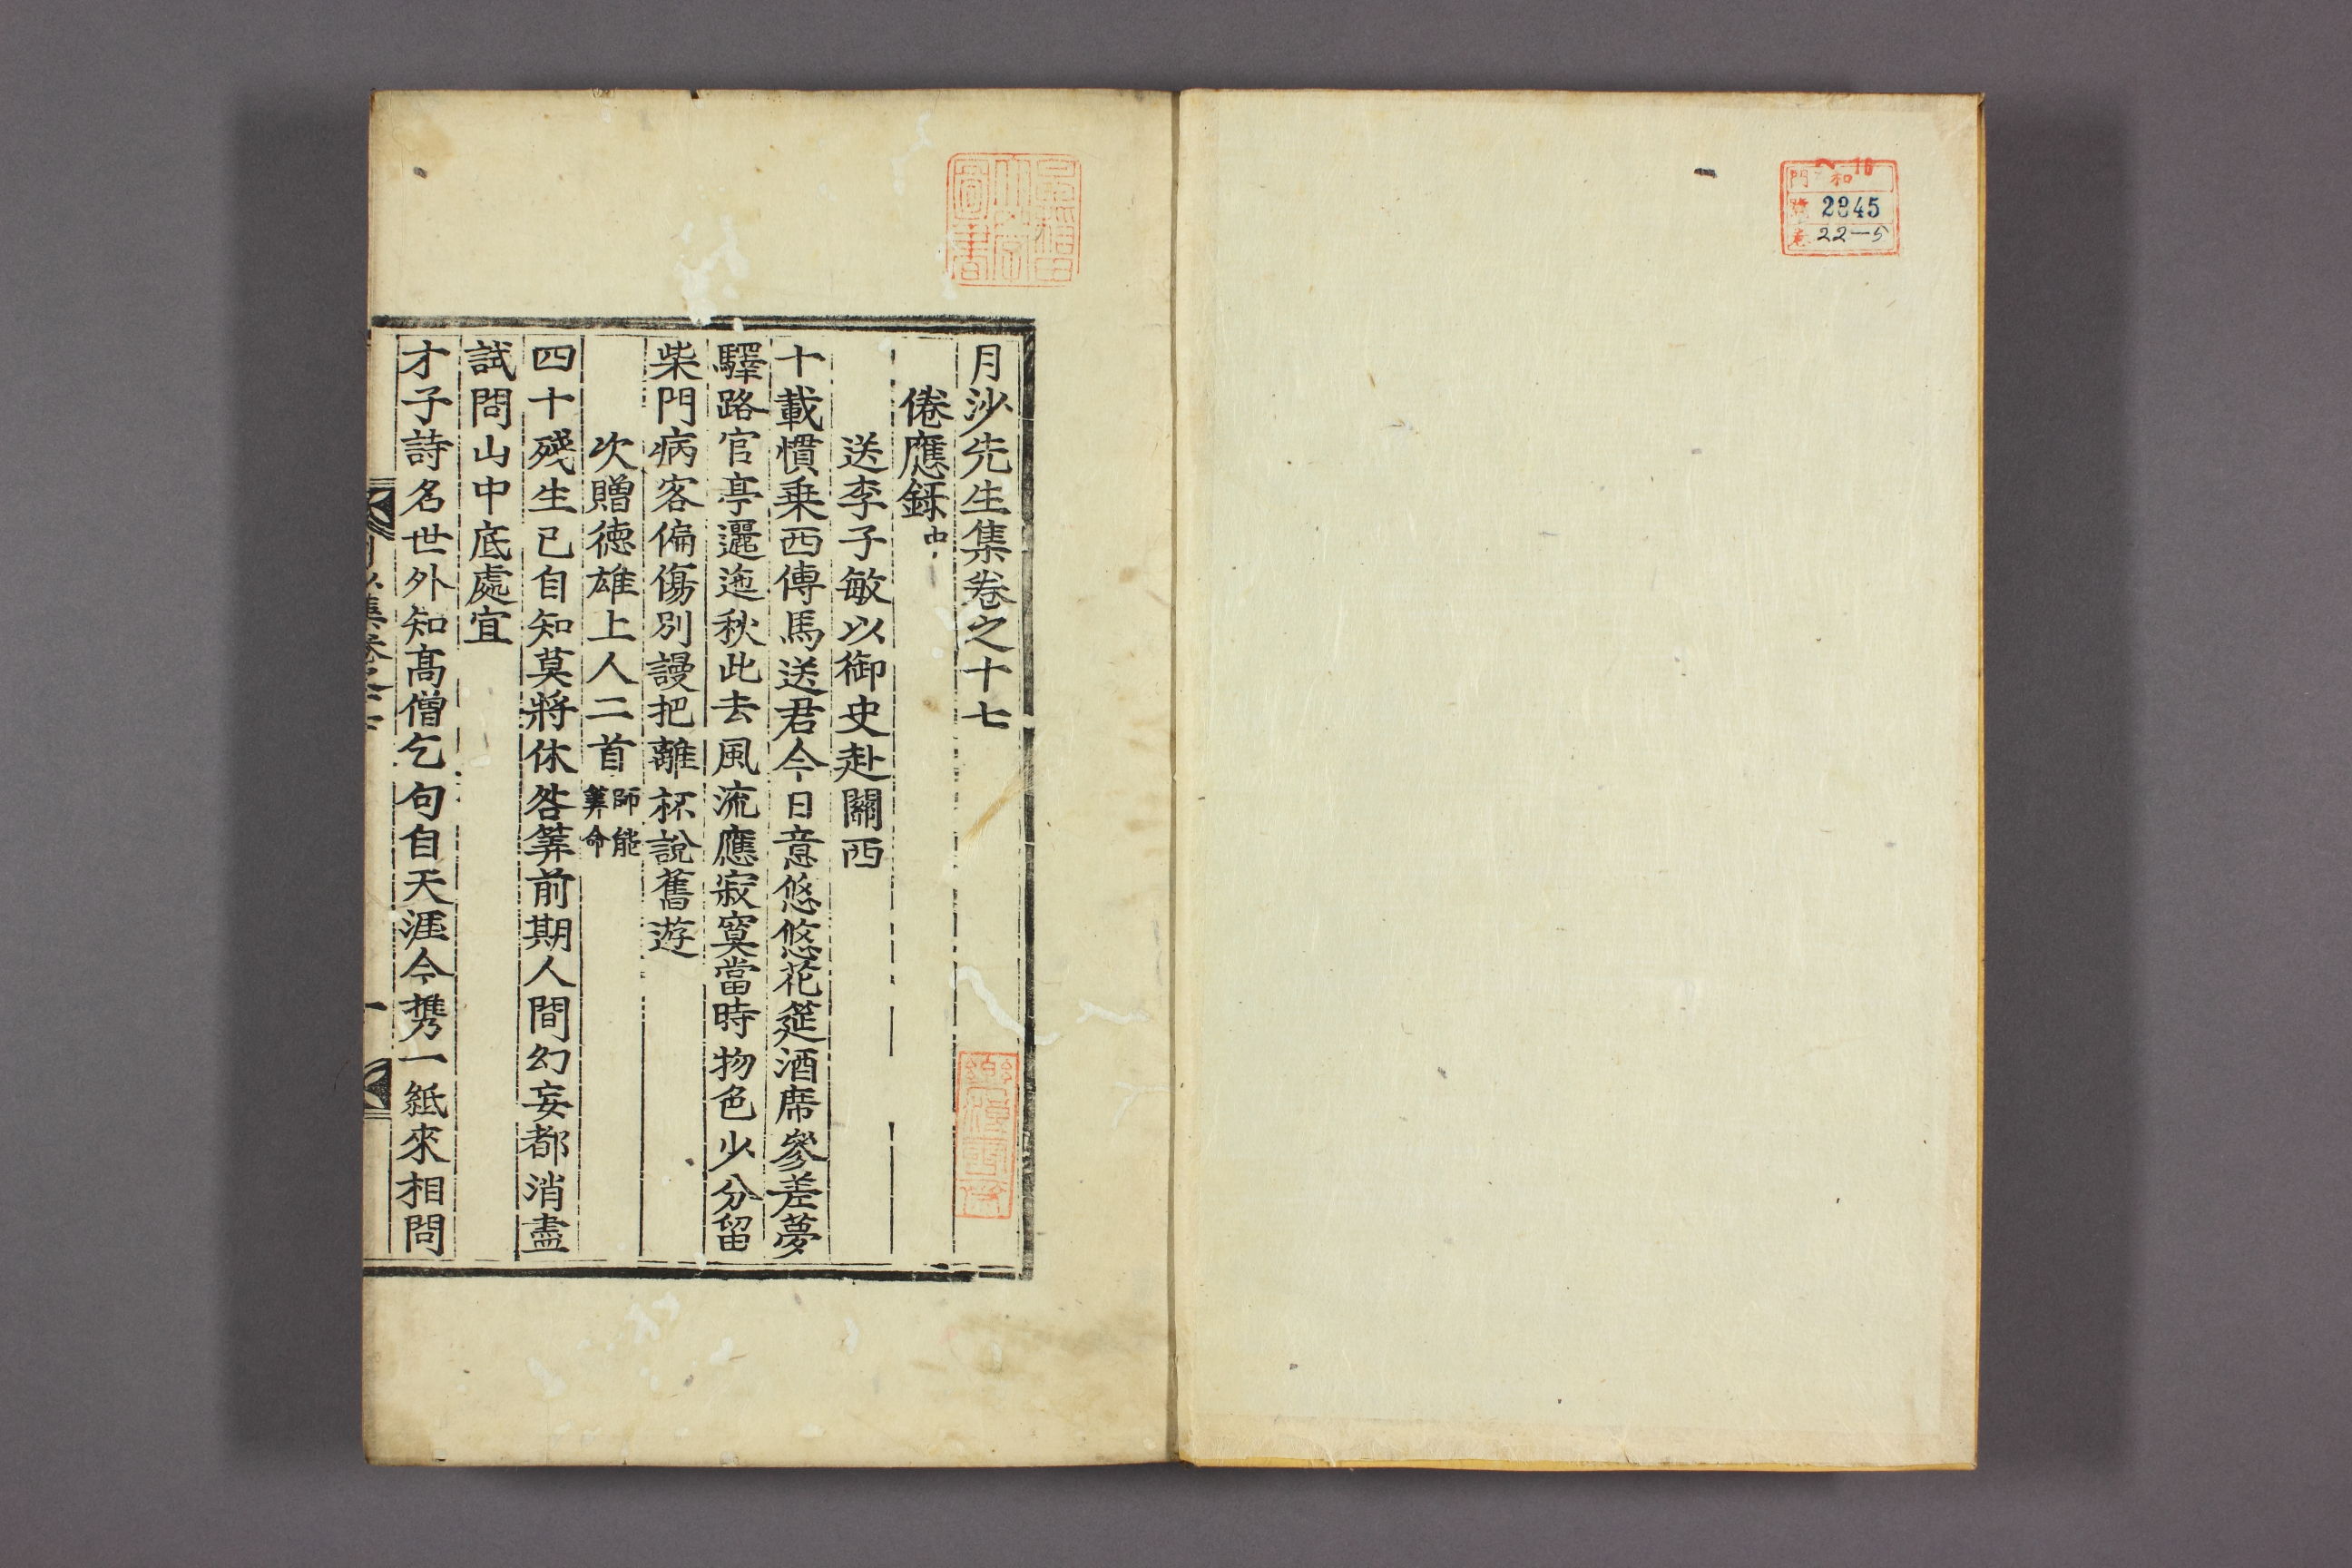 和
2845
22-5
月沙先生集卷之十七
倦應録中
送李子敏以御史赴關西
十載慣乗西傳馬送君今日意悠悠花筵酒席參差夢
驛路官亭邐迤秋此去風流應寂寞當時物色少分留
柴門病客偏傷別謾把離杯說舊遊
次贈德雄上人二首師能筭命
四十殘生已自知莫將休咎筭前期人間幻妄都消盡
試問山中底處宜
才子詩名世外知高僧乞句自天涯今携一紙來相問